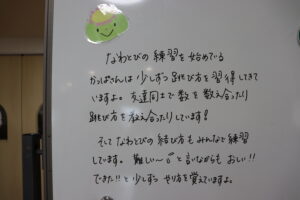 なわとびの練習を始めている
かっぱさんは少しずつ跳び方を習得してきて
いますよ。友達同士で数を数え合ったり
跳び方を教え合ったりしています!
そしてなわとびの結び方もみんなで練習
しています。難しい〜!と言いながらも おしい!!
できた!!と少しずつ やり方を覚えていますよ。